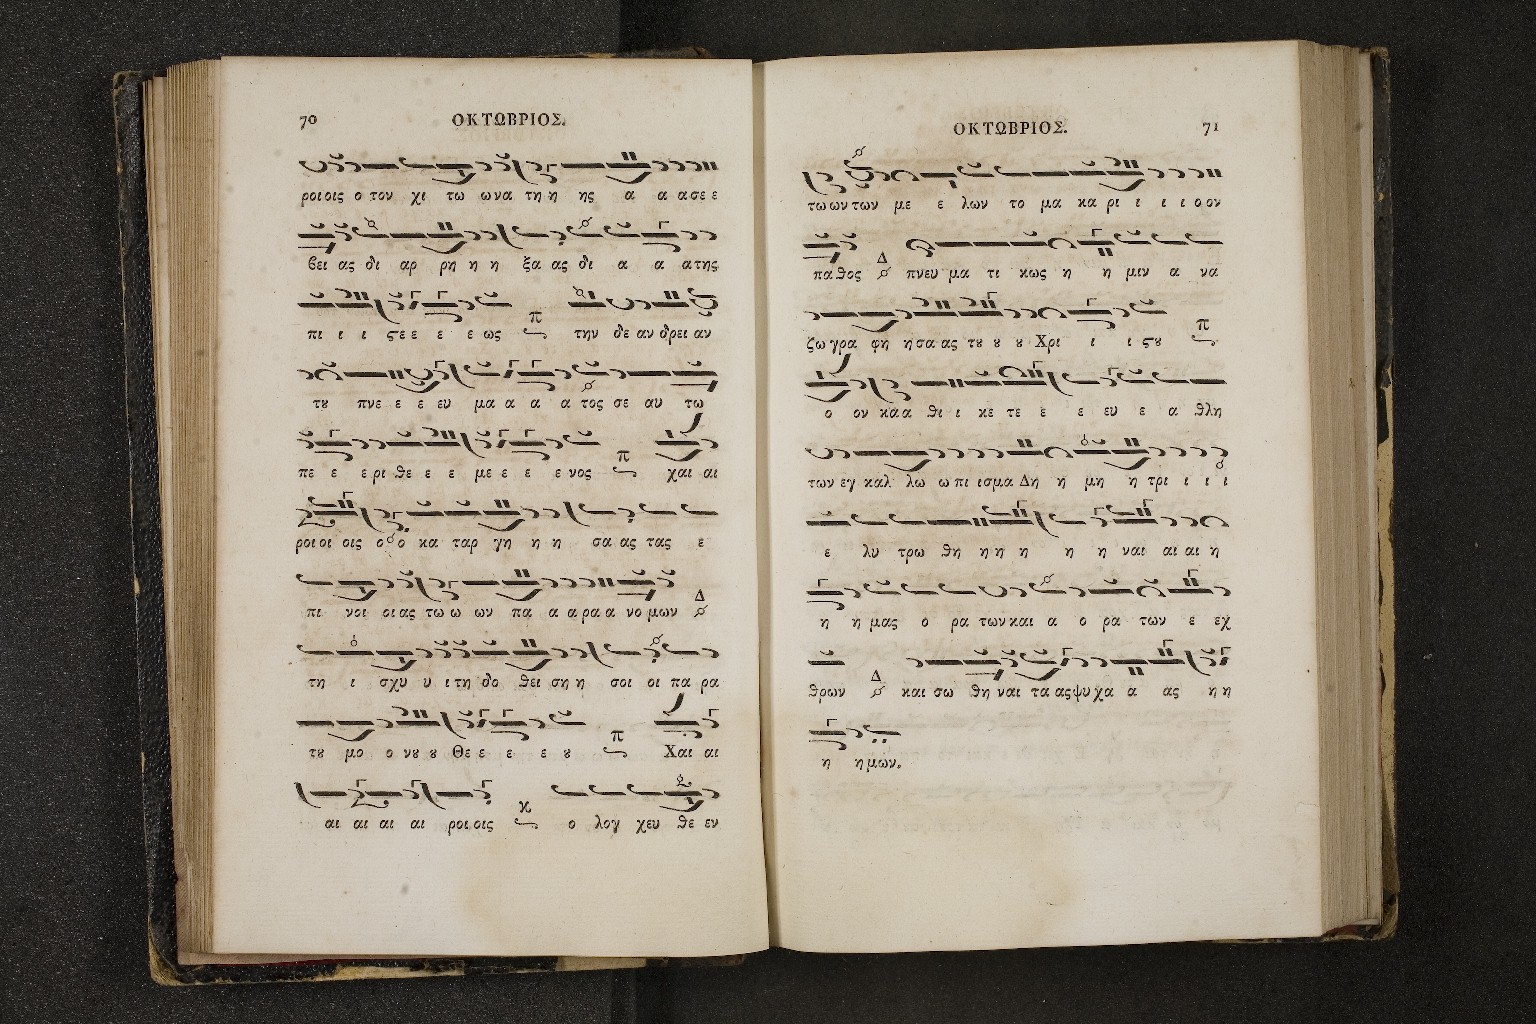 70
ΟΚΤΩΒΡΙΟΣ.
ροι οις ο τον χι τω ω να τη η ης α α α σε ε
βει ας δι αρ ρη η η ξα ας δι α α α της
πι ι ι ςε ε ε ε ως π την δε αν δρει αν
τȣ πνε ε ε ευ μα α α α τος σε αυ τω
πε ε ε ρι θε ε ε με ε ε ε νος π χαι αι
ροι οι οις ο ο κα ταρ γη η η σα ας τας ε
πι νοι οι ας τω ω ων πα α α ρα α νο μων Δ
τη ι σχυ υ ι τη δο θει ση η σοι οι πα ρα
τȣ μο ο νȣ ȣ Θε ε ε ε ȣ π Χαι αι
αι αι αι αι ροι οις κ ο λογ χευ θε εν
ΟΚΤΩΒΡΙΟΣ.
71
τω ων των με ε λων το μα κα ρι ι ι ι ο ον
πα θος Δ πνευ μα τι κως η η μιν α να
ζω γρα φη η σα ας τȣ ȣ ȣ Χρι ι ι ςȣ π
ο ον κα α θι ι κε τε ε ε ευ ε α θλη
των εγ καλ λω ω πι ισμα Δη η μη η τρι ι ι ι
ε λυ τρω θη η η η η η ναι αι αι η
η η μας ο ρα των και α ο ρα των ε εχ
θρων Δ και σω θη ναι τα ας ψυ χα α ας η η
η η μων.